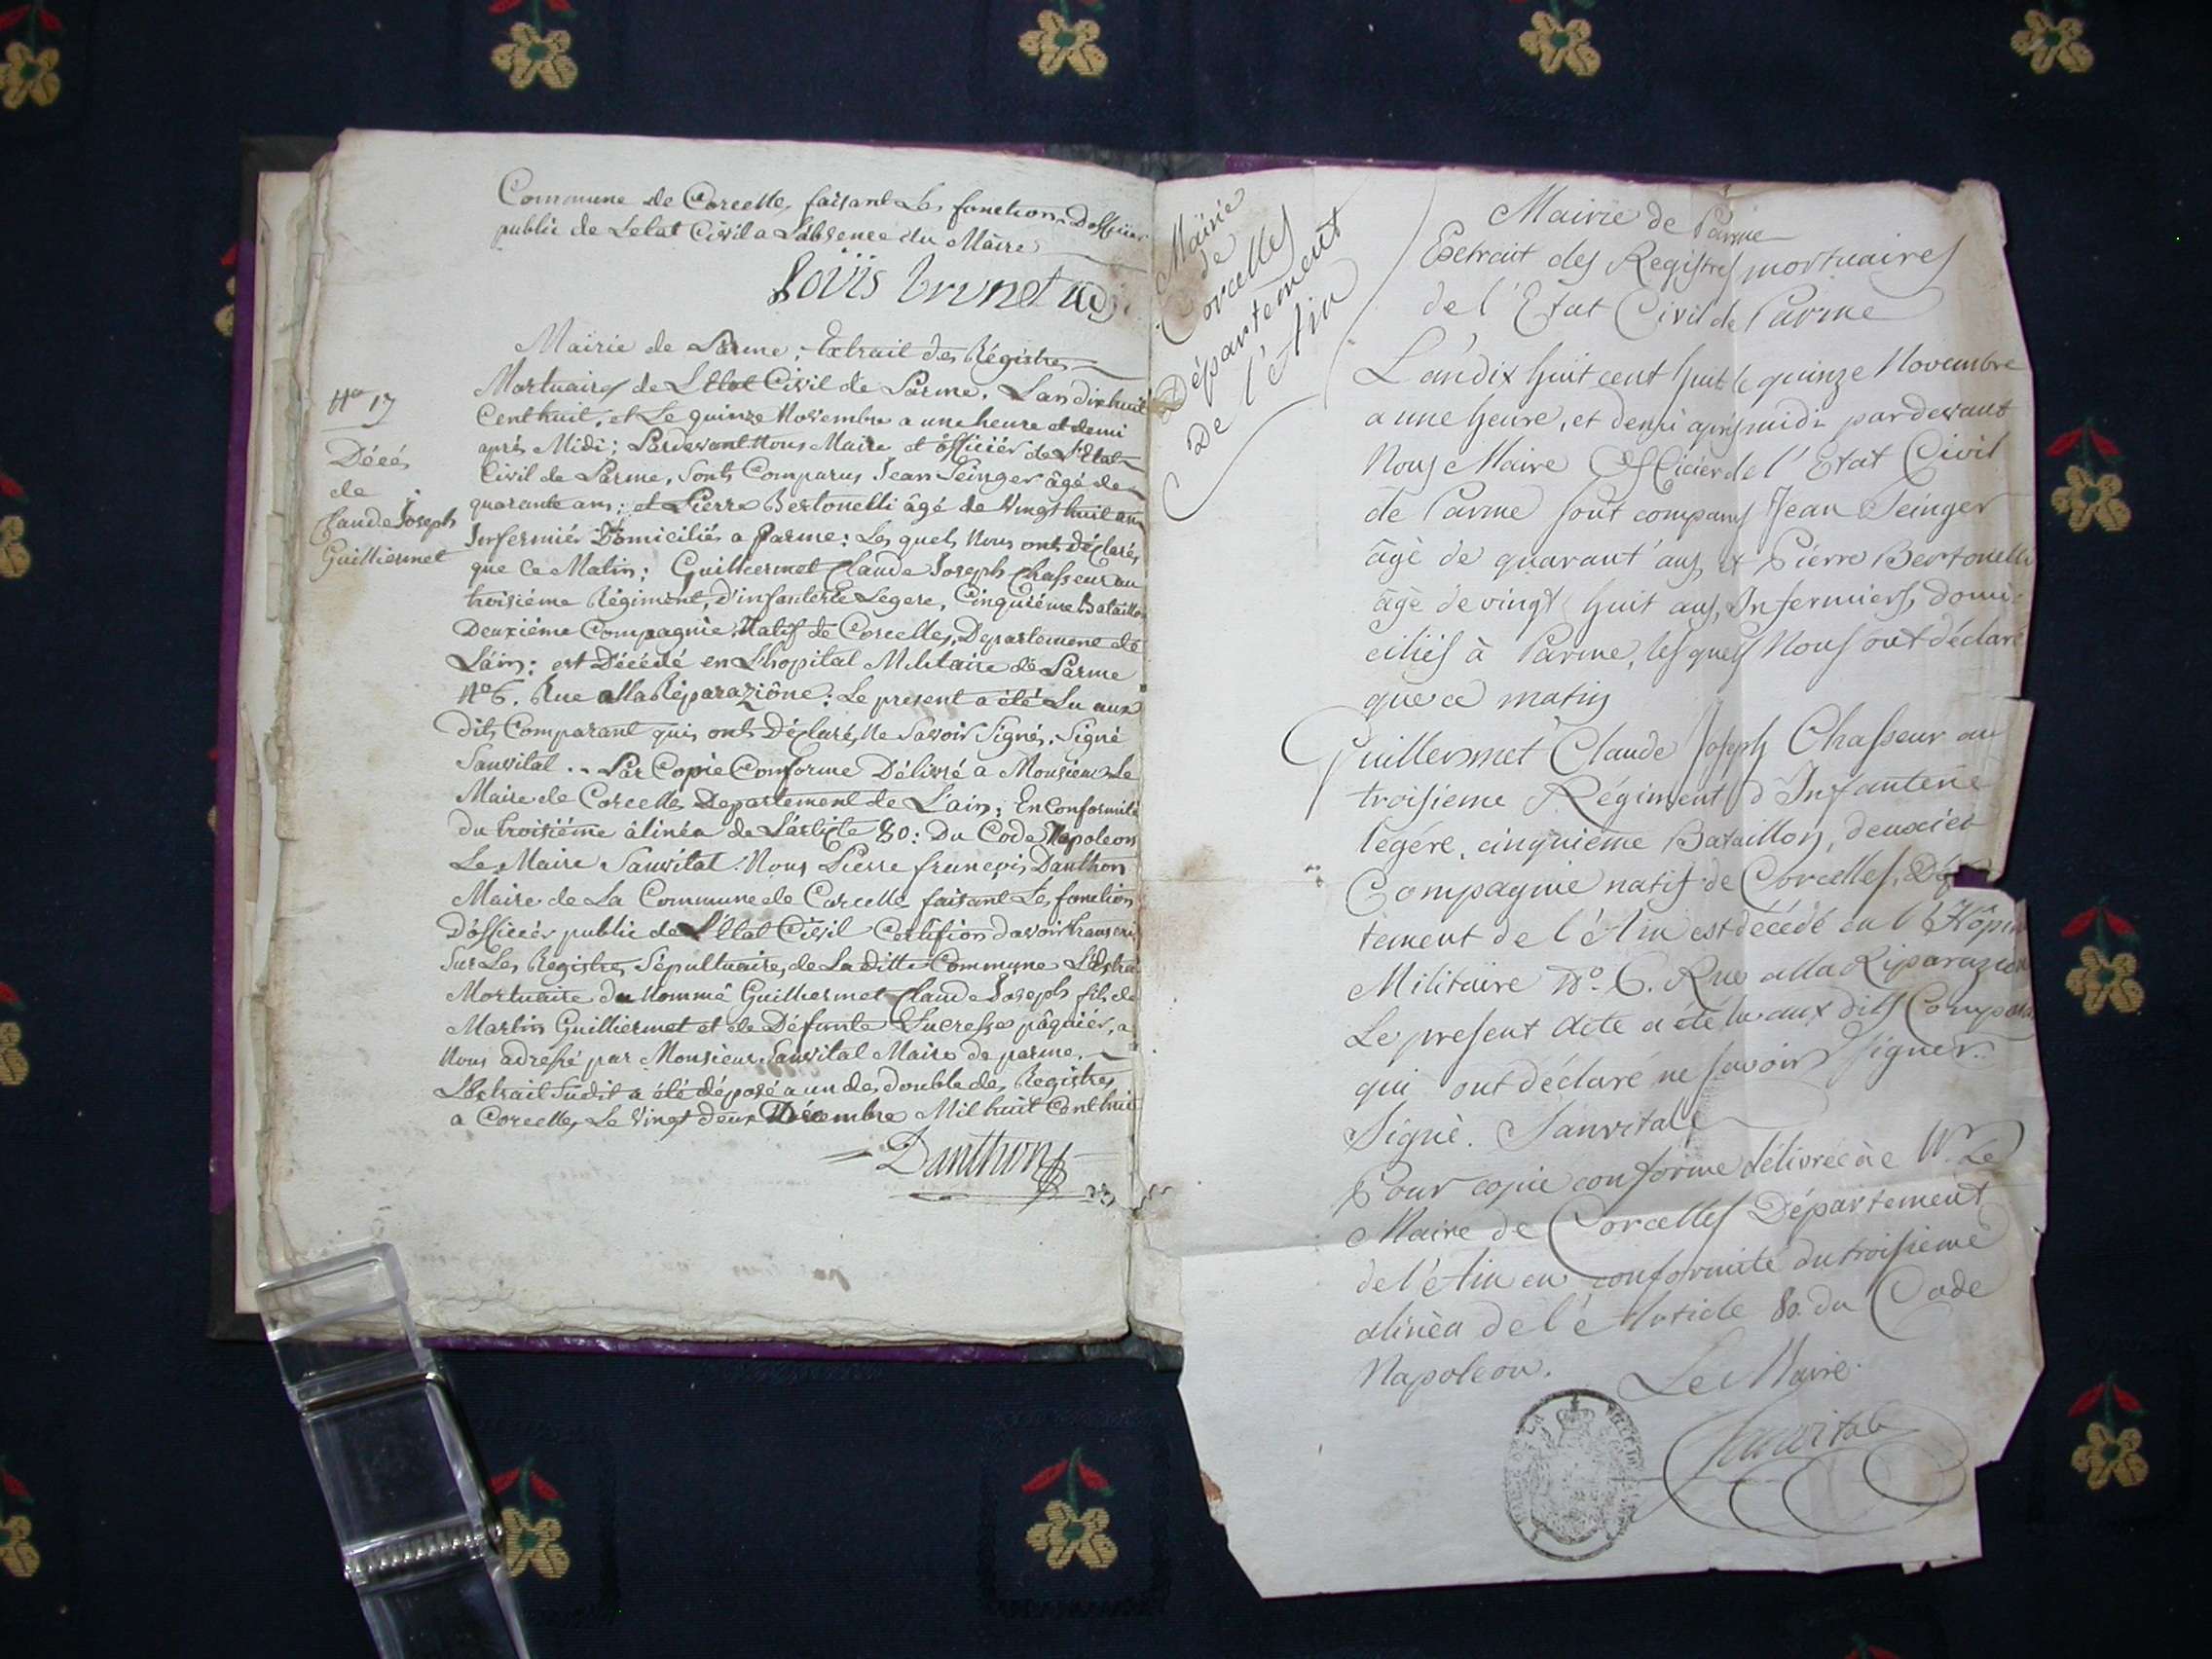 Commune de Corcelle, faisant Les fonction D'officier
public de Letat Civil a L'absence du Maire
Loüis brunet adj
Mairie de Parme; Extrait des Régistres
Mortuaires de L'Etat Civil de Parme. L'an dix huit
Cent huit, et Le quinze Novembre a une heure et demi
aprés Midi; Pardevant Nous Maire et officiér de L'Etat
Civil de Parme, Sont Comparus Jean Seinger âgé de
quarante ans; et Pierre Bertonelli âgé de Vingt huit ans
Infermiér Domiciliés a Parme: Les quels Nous ont déclarés
que Ce Matin; Guilliermet Claude Joseph Chasseur au
troisiéme Régiment, D'infanterie Legere, Cinquiéme Bataillon
Deuxiéme Compagnie, Natif de Corcelles, Departement de
L'ain; est Décédé en L'hopital Militaire de Parme
No 6. Rue alla Réparaziône: Le present a été Lu aux
dits Comparant quis ont Déclarés Ne Savoir Signés. Signé
Sanvital .. Par Copie Conforme Délivré a Monsieur Le
Maire de Corcelle Departement de L'ain; En Conformité
du troisiéme âlinéa de L'article 80: Du Code Napoleon
Le Maire Sanvital. Nous Pierre françois Danthon
Maire de La Commune de Corcelle faisant Les fonction
D'officiér public de L'Etat Civil Certifion d'avoir transcri
Sur Les Registres Sépultuaire, de La ditte Commune L'Extrai
Mortuaire du Nommé Guilliermet Claude Joseph fils de
Martin Guilliermet et de Défunte Lucresse pâquiér, a
Nous adressé par Monsieur Sanvital Maire de parme.
L'Extrait Sudit a été déposé a un des double des Registres
a Corcelle, Le Vingt deux Décembre Mil huit Cent huit
Danthon
No 17
Décés
de
Claude Joseph
Guilliermet
Mairie
de
Corcelles
Département
De l'Ain
Mairie de Parme
Extrait des Registres mortuaires
de l'Etat Civil de Parme
L'an dix huit cent huit le quinze Novembre
a une heure, et demi après midi pardevant
Nous Maire Officier de l'Etat Civil
de Parme sont comparus Jean Seinger
âgè de quarant'ans, et Pierre Bertonelli
âgè de vingt huit ans, Infermiers, domi-
ciliés à Parme, les quels Nous ont déclaré
que ce matin
Guillermet Claude Joseph Chasseur au
troisieme Régiment d'Infanterie
légére, cinquieme Bataillon, deuxiem
Compagnie natif de Corcelles, Dép
tement de l'Ain est décédé en l'Hôpita
Militaire No. 6. Rue alla Riparazione
Le present Acte a été lu aux dits Compara
qui ont déclaré ne savoir signer.
Signè. Sanvitale
Pour copie conforme délivrée à M. Le
Maire de Corcelles Département
de l'Ain en conformité du troisieme
alinèa de l'Article 80. du Code
Napoleon.
Le Maire
Sanvitale